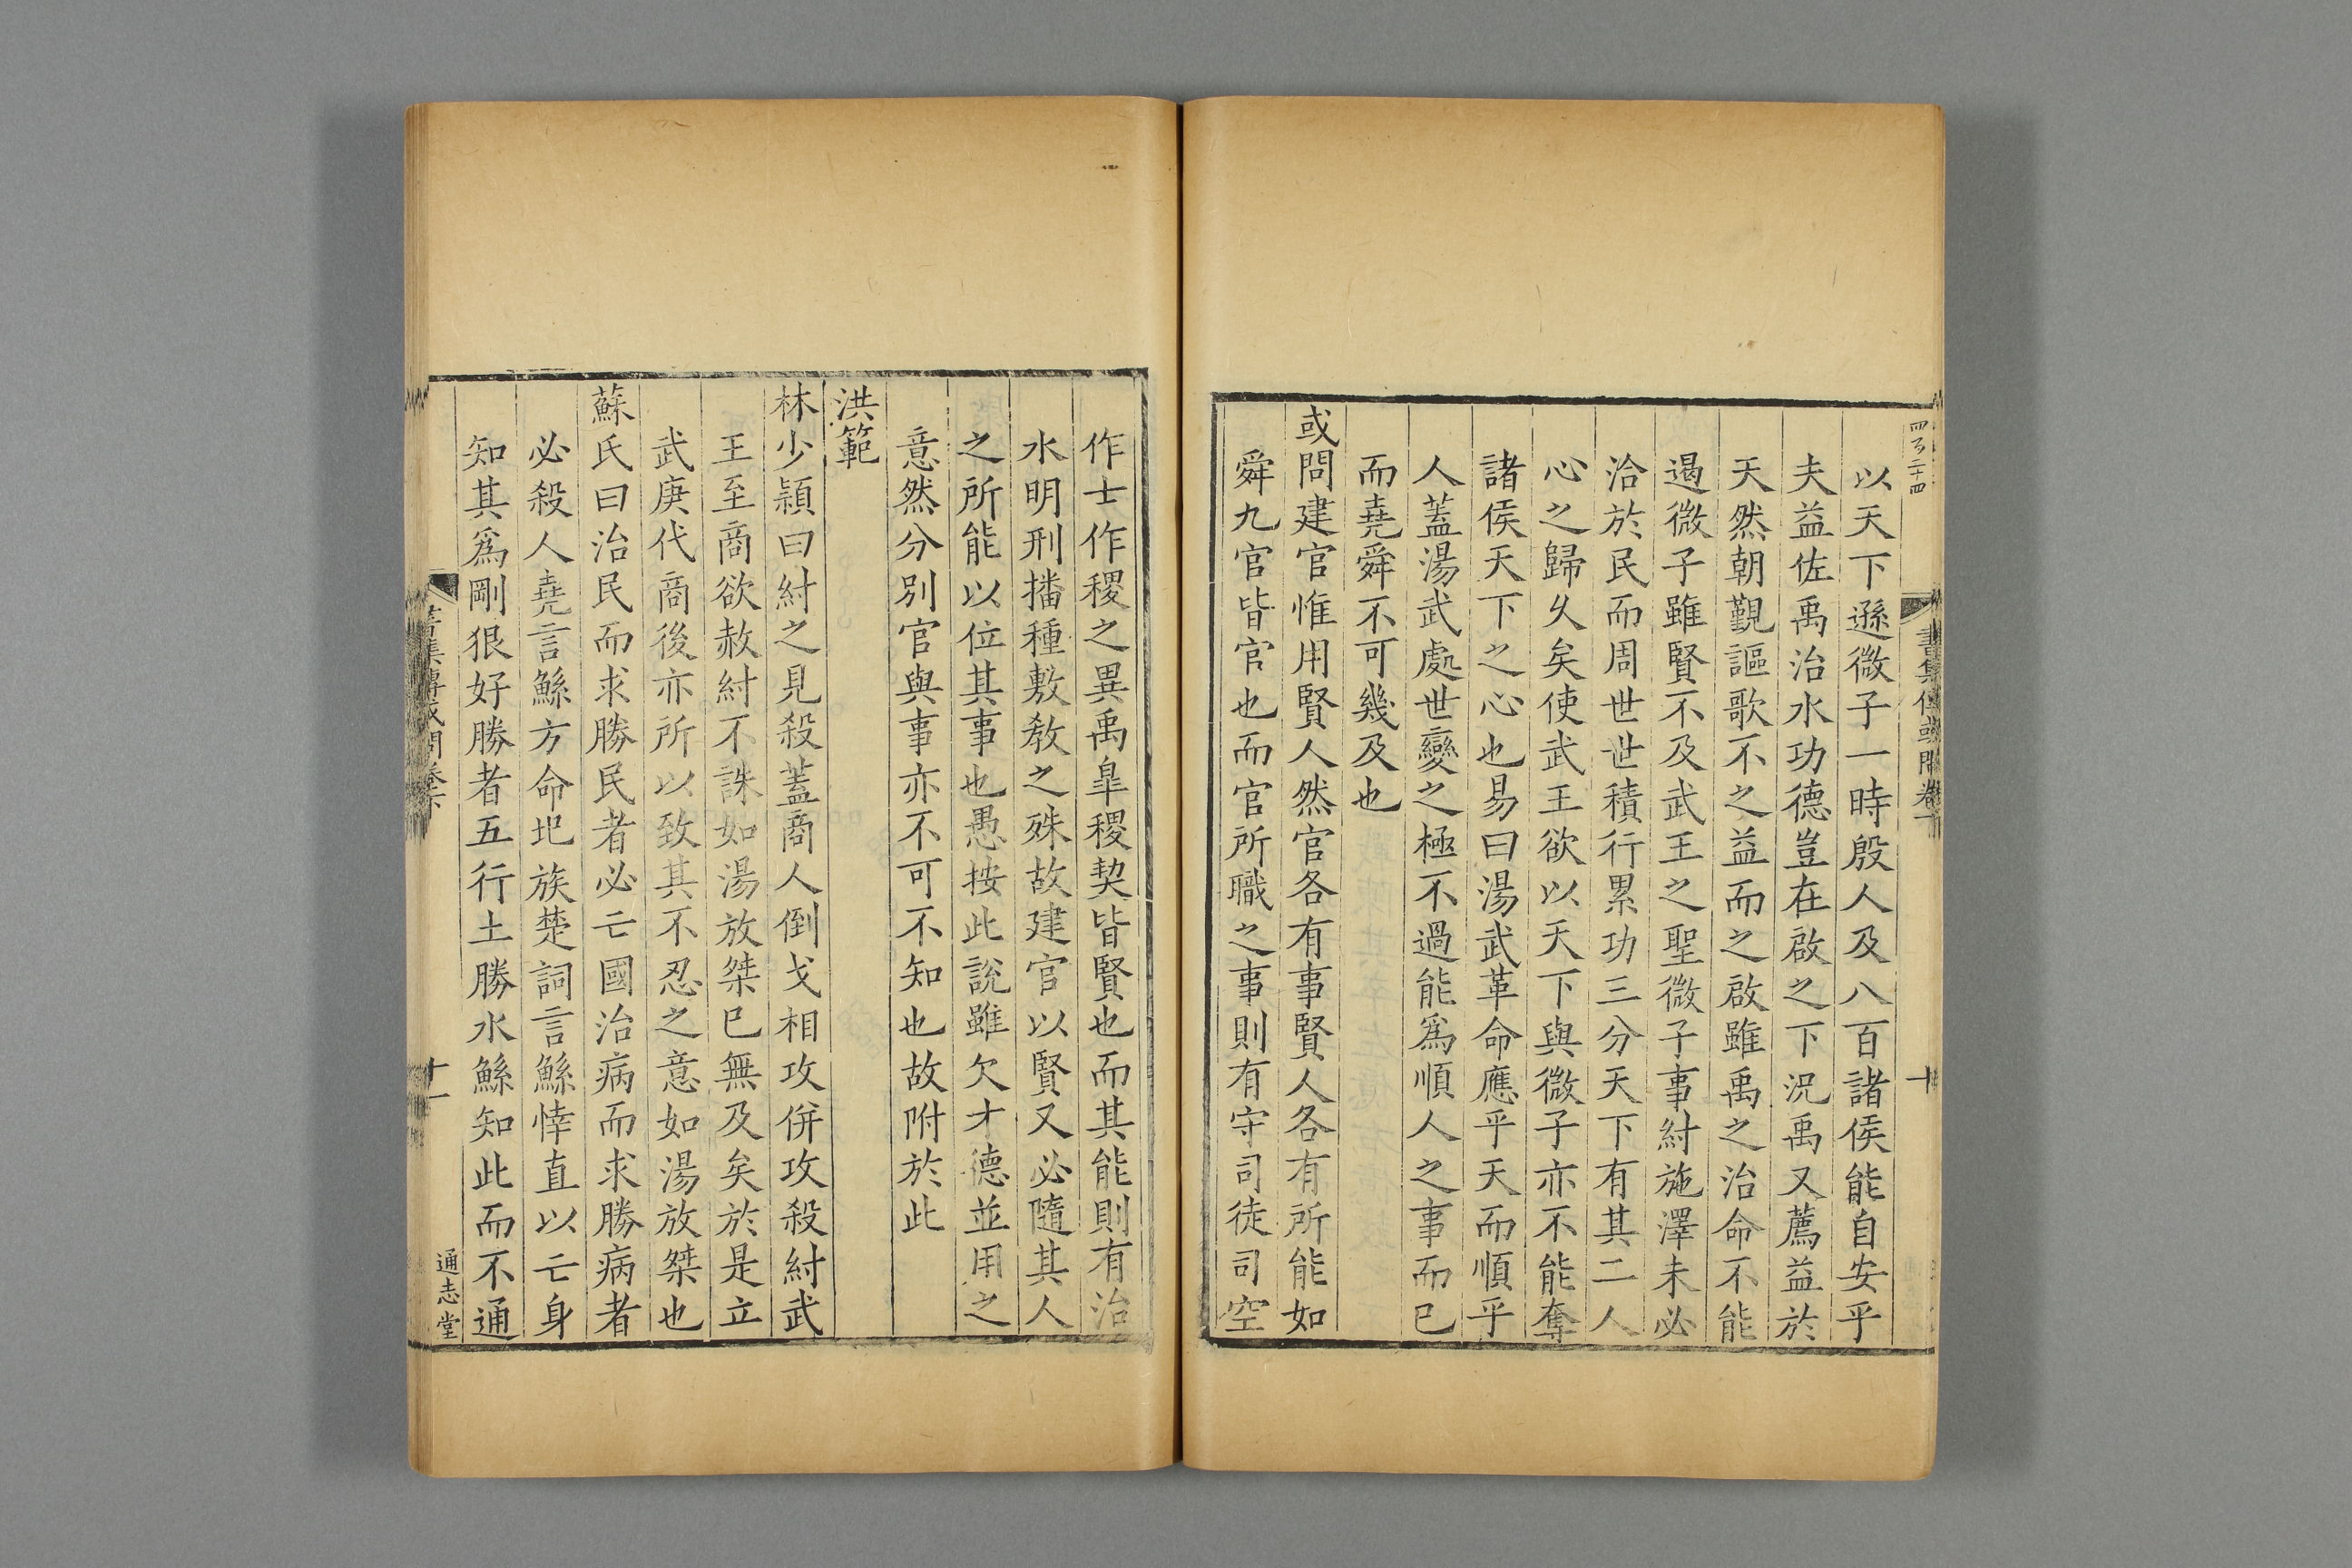 四百二十四
書集傳或問卷下
十
以天下遜微子一時殷人及八百諸侯能自安乎
夫益佐禹治水功德豈在啟之下況禹又薦益於
天然朝覲謳歌不之益而之啟雖禹之治命不能
遏微子雖賢不及武王之聖微子事紂施澤未必
洽於民而周世世積行累功三分天下有其二人
心之歸久矣使武王欲以天下與微子亦不能奪
諸侯天下之心也易曰湯武革命應乎天而順乎
人蓋湯武處世變之極不過能爲順人之事而已
而堯舜不可幾及也
或問建官惟用賢人然官各有事賢人各有所能如
舜九官皆官也而官所職之事則有守司徒司空
作士作稷之異禹臯稷契皆賢也而其能則有治
水明刑播種敷敎之殊故建官以賢又必隨其人
之所能以位其事也愚按此說雖欠才德並用之
意然分別官與事亦不可不知也故附於此
洪範
林少穎曰紂之見殺蓋商人倒戈相攻併攻殺紂武
王至商欲赦紂不誅如湯放桀已無及矣於是立
武庚代商後亦所以致其不忍之意如湯放桀也
蘇氏曰治民而求勝民者必亡國治病而求勝病者
必殺人堯言鯀方命圮族楚詞言鯀悻直以亡身
知其爲剛狠好勝者五行土勝水鯀知此而不通
書集傳或問卷下
十一
通志堂